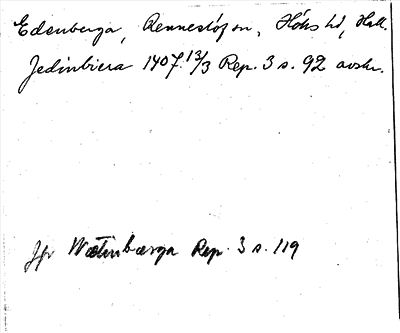 Edenberga, Renneslöf sn, Höks hd, Hall.
Jedinbiera 1407 13/3 Rep. 3 s. 92 avskr.
Jfr Watinbærga Rep. 3 s. 119